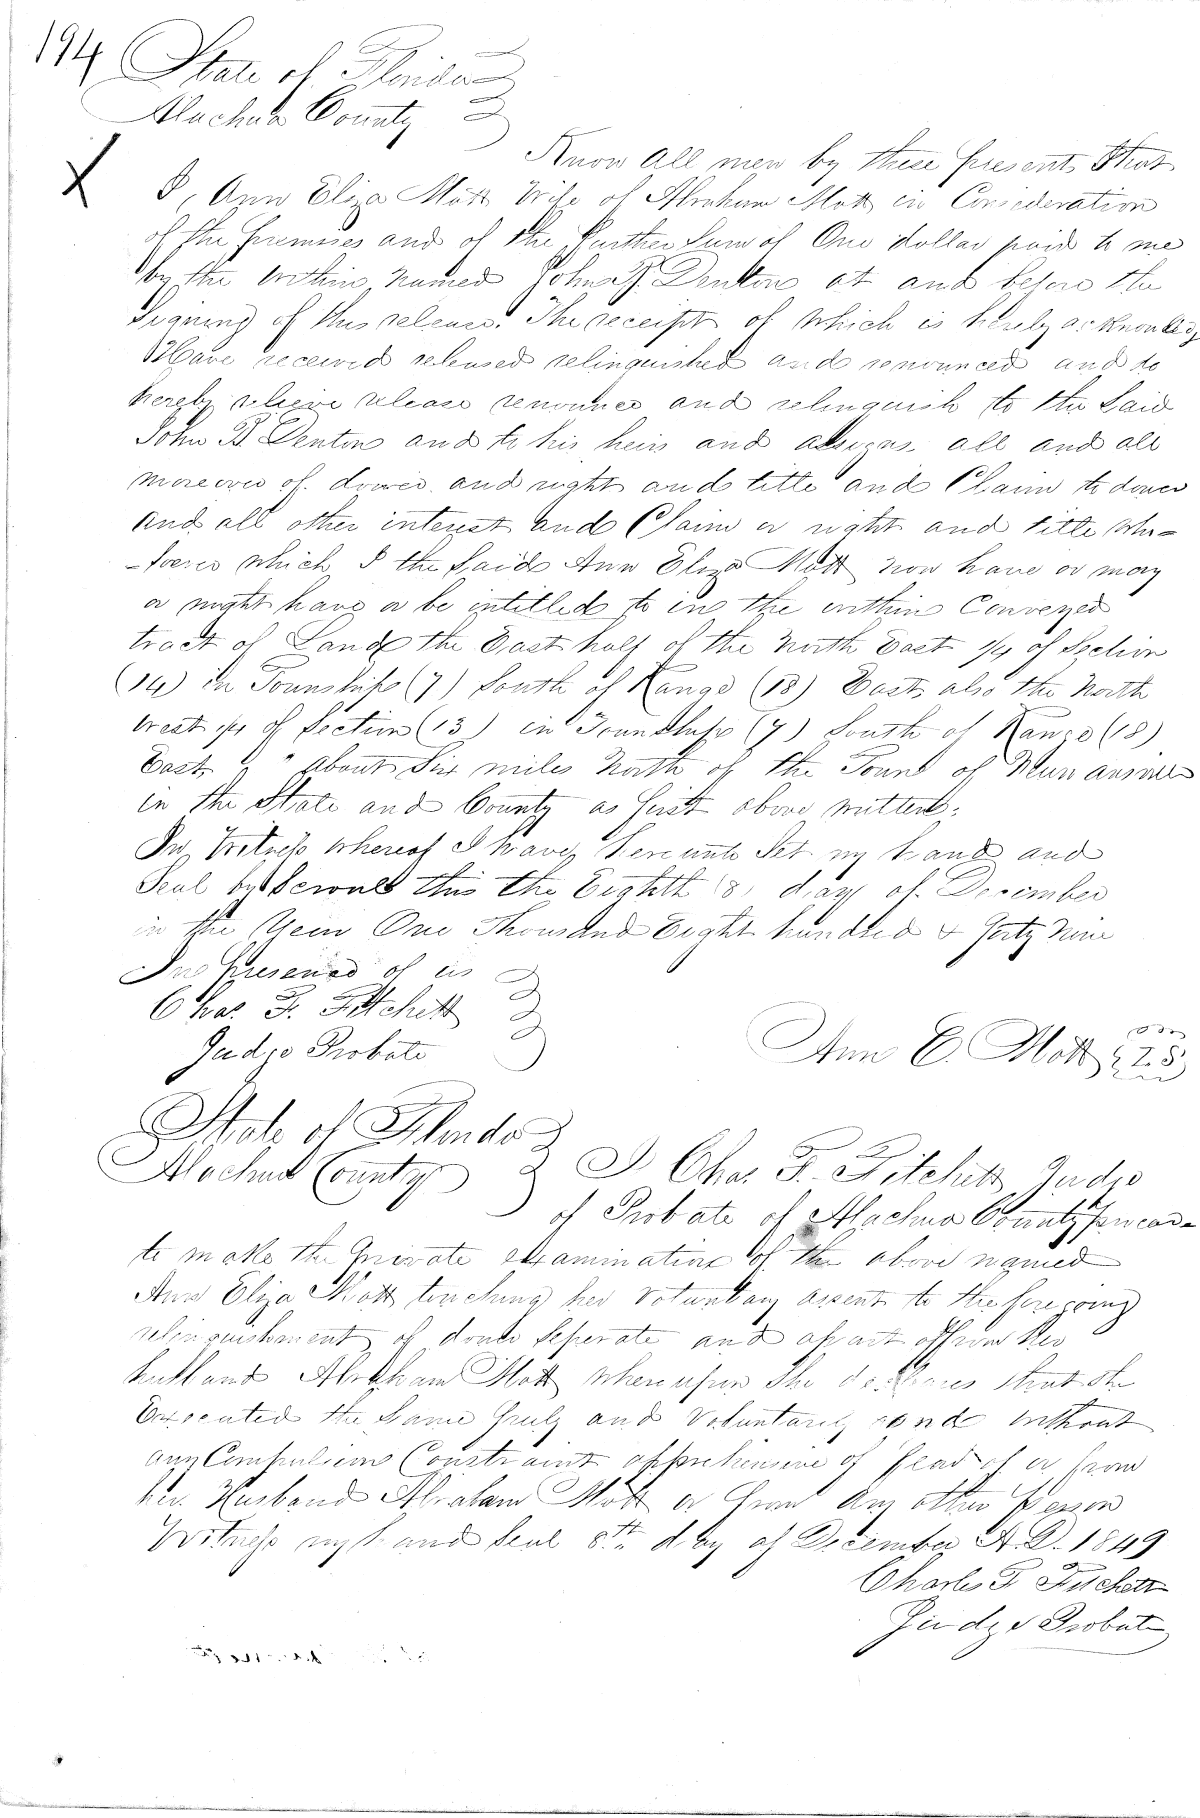 194
State of Florida
Alachua County
Know all men by these presents that
I, Ann Eliza Mott Wife of Abraham Mott in Consideration
of the premises and of the further Sum of One dollar paid to me
by the within named John B. Denton at and before the
Signing of this release. The receipt of which is hereby acknowledg
Have received released relinquished and renounced and do
hereby relieve release renounce and relinquish to the Said
John B Denton and to his heirs and assigns all and all
moreover of dower and right and title and Claim to dower
and all other interest and Claim or right and title wha=
=soever which I the Said Ann Eliza Mott now have or may
or might have or be intitled to in the within Conveyed
tract of Land the East half of the North East 1/4 of Section
(14) in Township (7) South of Range (18) East, also the North
west 1/4 of Section (13) in Township (7) South of Range (18)
East, " " About Six miles North of the Town of Newnansville
in the State and County as first above written.
In Witness whereof I have hereunto Set my hand and
Seal this the Eighth (8) day of December
in the Year One Thousand Eight hundred & forty Nine
In presence of us
Chas. F. Fitchett
Judge Probate
Ann E. Mott L.S.
State of Florida
Alachua County I Chas. F. Fitchett Judge
of Probate of Alachua County
to make the private examination of the above named
Ann Eliza Mott touching her Voluntary assent to the foregoing
relinquishment of dower Seperate and apart from her
husband Abraham Mott whereupon She declares that She
Executed the Same freely and Voluntarily and without
any Compulsion Constraint apprehension of fear of or from
her Husband Abraham Mott or from any other person
Witness my hand and Seal 8th day of December A.D. 1849
Charles F Fitchett
Judge Probate